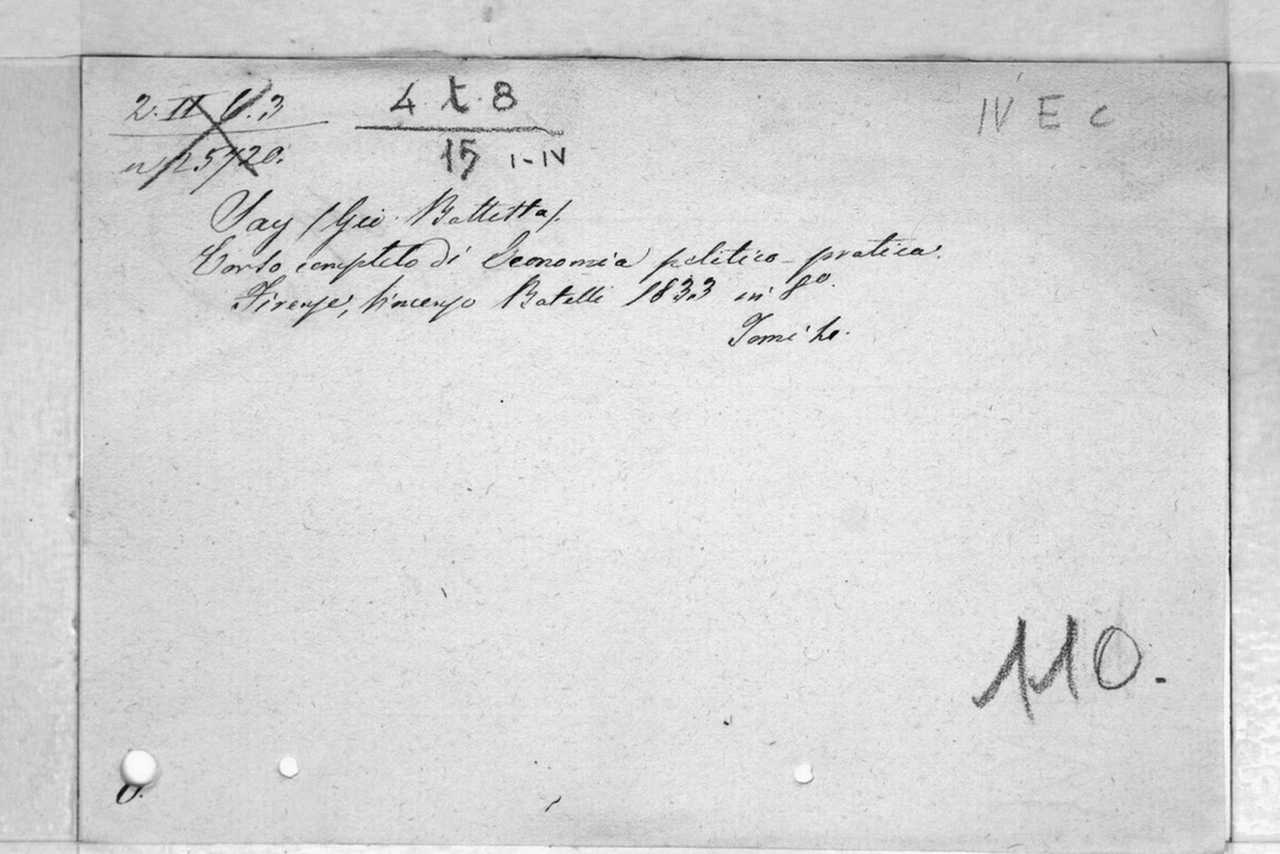 2. II 6.3
n/ 25720.
4. t. 8
15 I-IV
IV E c
Say (Gio. Battista).
Corso completo di Economia politico-pratica.
Firenze, Vincenzo Batelli 1833 in 8o.
Tomi
110.